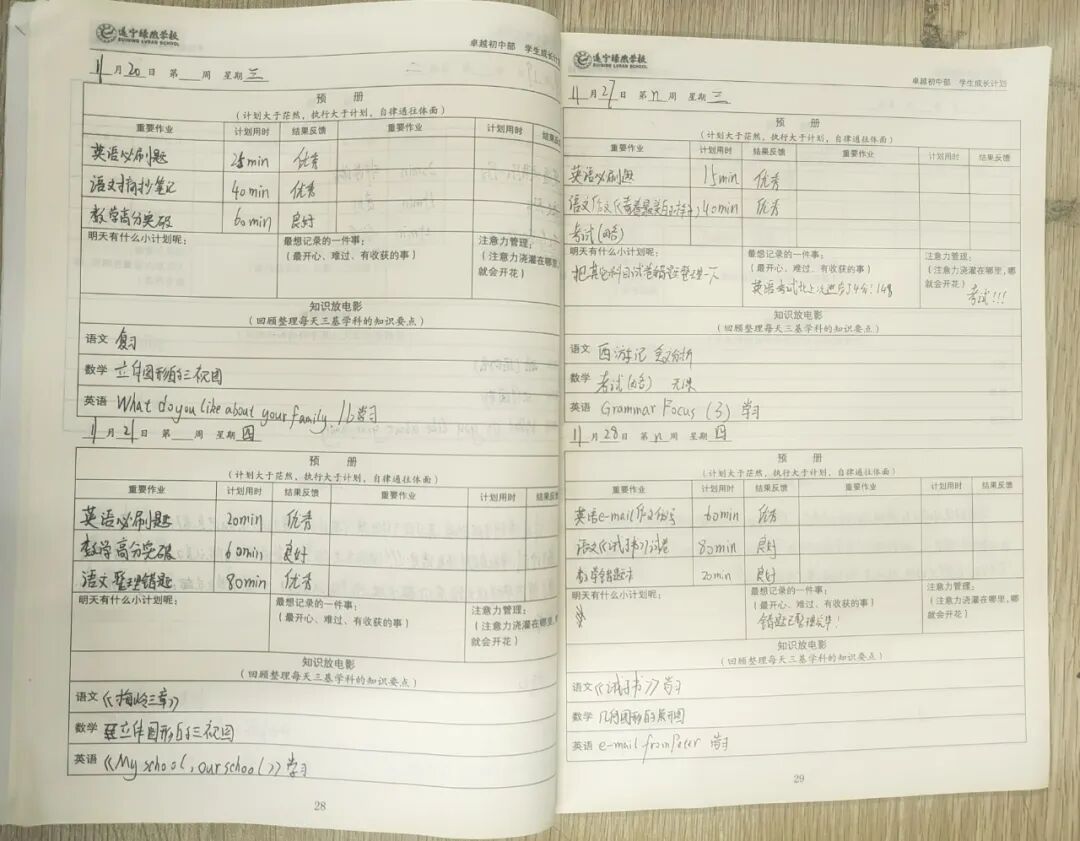 遂宁绿然学校
SUINING LVRAN SCHOOL
卓越初中部 学生成长计划
11月20日 第 周 星期三
预 册
(计划大于茫然，执行大于计划，自律通往体面)
重要作业 计划用时 结果反馈 重要作业 计划用时 结果反
英语必刷题 25min 优秀
语文摘抄笔记 40min 优秀
数学高分突破 60min 良好
明天有什么小计划呢： 最想记录的一件事： 注意力管理：
(最开心、难过、有收获的事) (注意力浇灌在哪里，
就会开花)
知识放电影
(回顾整理每天三基学科的知识要点)
语文 复习
数学 立体图形的三视图
英语 What do you like about your family. 1b学习
11月21日 第 周 星期四
预 册
(计划大于茫然，执行大于计划，自律通往体面)
重要作业 计划用时 结果反馈 重要作业 计划用时 结果反馈
英语必刷题 20min 优秀
数学高分突破 60min 良好
语文整理错题 80min 优秀
明天有什么小计划呢： 最想记录的一件事： 注意力管理：
(最开心、难过、有收获的事) (注意力浇灌在哪里，
就会开花)
知识放电影
(回顾整理每天三基学科的知识要点)
语文 《梅岭三章》
数学 立体图形的三视图
英语 《My school, our school》学习
28
遂宁绿然学校
SUINING LVRAN SCHOOL
卓越初中部 学生成长计划
11月27日 第n周 星期三
预 册
(计划大于茫然，执行大于计划，自律通往体面)
重要作业 计划用时 结果反馈 重要作业 计划用时 结果反馈
英语必刷题 15min 优秀
语文作文《青春最美的样子》40min 优秀
考试(略)
明天有什么小计划呢： 最想记录的一件事： 注意力管理：
(最开心、难过、有收获的事) (注意力浇灌在哪里，哪
就会开花)
把其它科目试卷错题整理一下
英语考试比上次进步了4分！148
考试!!!
知识放电影
(回顾整理每天三基学科的知识要点)
语文 西游记 分析
数学 考试(略) 无课
英语 Grammar Focus (3) 学习
11月28日 第n周 星期四
预 册
(计划大于茫然，执行大于计划，自律通往体面)
重要作业 计划用时 结果反馈 重要作业 计划用时 结果反馈
英语e-mail作文 60min 优秀
语文《诫子书》试卷 80min 良好
数学错题 20min 良好
明天有什么小计划呢： 最想记录的一件事： 注意力管理：
(最开心、难过、有收获的事) (注意力浇灌在哪里，哪
就会开花)
错题已整理完毕！
知识放电影
(回顾整理每天三基学科的知识要点)
语文 《诫子书》学习
数学 几何图形的展开图
英语 e-mail from Peter 学习
29